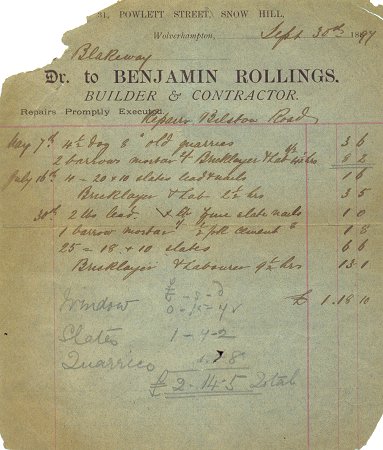 31, POWLETT STREET, SNOW HILL,
Wolverhampton, Sept 30th 1897
Blakeway
Dr. to BENJAMIN ROLLINGS,
BUILDER & CONTRACTOR.
Repairs Promptly Executed.
Repairs Bilston Road
May 7th 4½ doz 6" old quarries 3 6
2 barrows mortar & Bricklayer & Lab hrs 8 2
July 16th 4 = 20 × 10 slates lead & nails 1 6
Bricklayer & Lab 2½ hrs 3 5
30th 2 lbs lead. & lb fine slate nails 1 0
1 barrow mortar ½ pk cement 1 8
25 = 18 × 10 slates 6 6
Bricklayer & Labourer 9½ hrs 13 1
£ 1.18 10
Window
Slates 1-4-2
Quarries 8
£ 2-14-5 Total